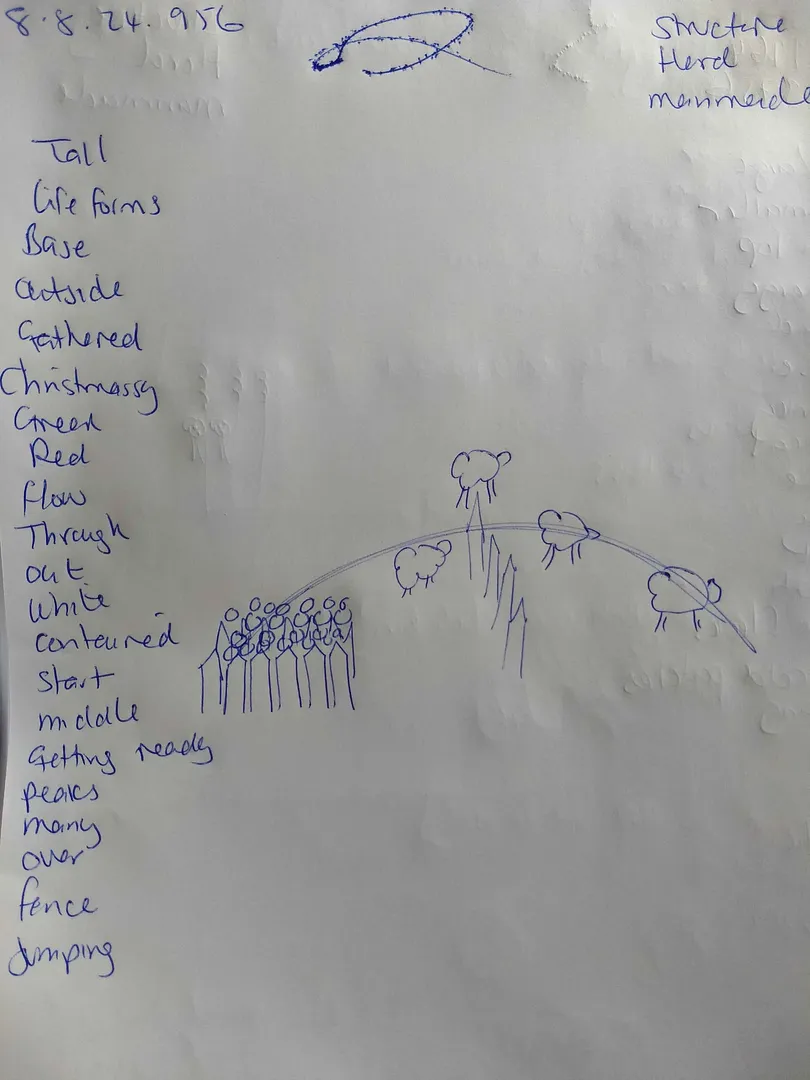 8.8.24. 956
Structure
Herd
manmade
Tall
life forms
Base
outside
Gathered
Christmassy
Green
Red
flow
Through
out
white
contoured
Start
middle
Getting ready
peaks
many
over
fence
Jumping